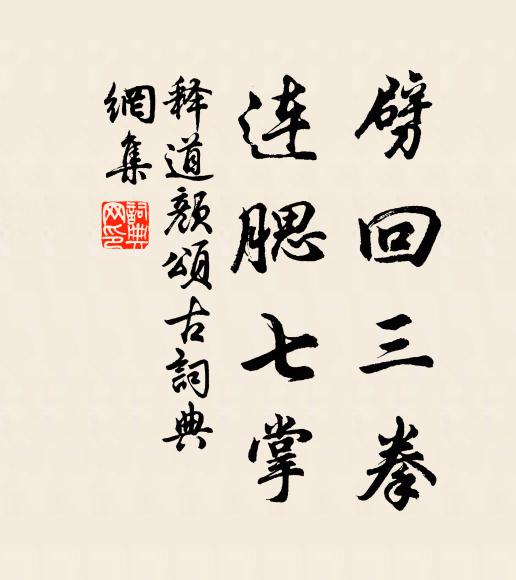 劈回三拳
连腮七掌
释道颜頌古詞典
網集
詞典网印